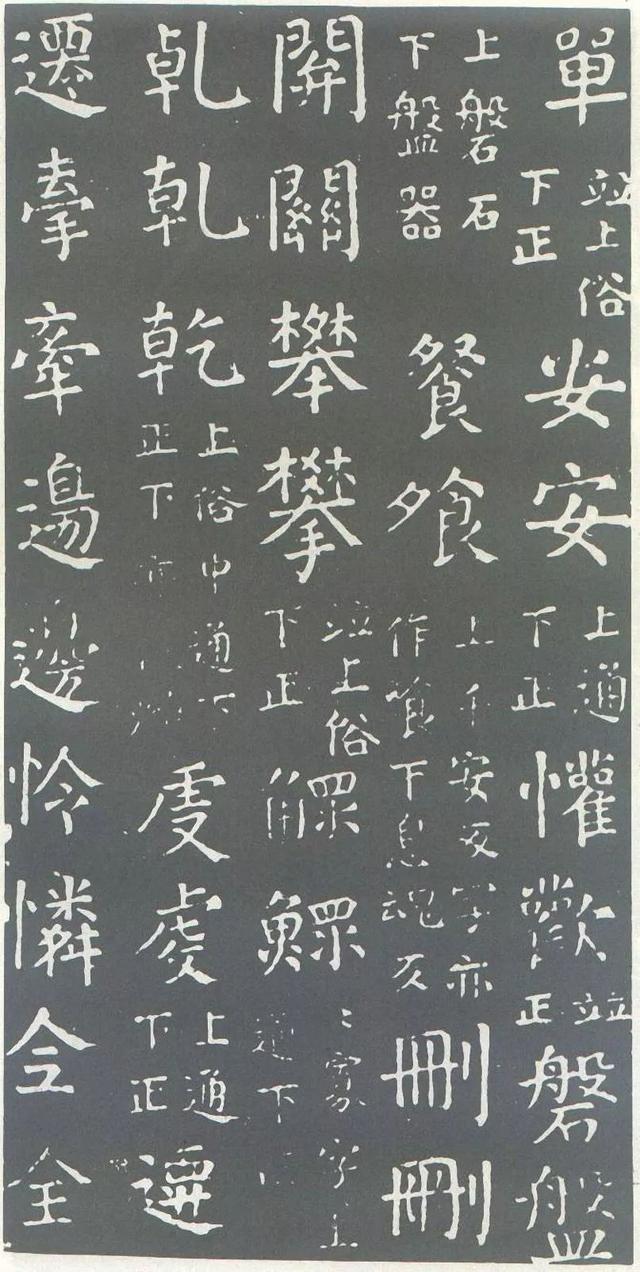 單竝上俗下正安安上通下正懽歡竝正磐盤
上磐石下盤器餐飧上千安反字亦作飡下息魂反刪刪
閞關攀攀竝上俗下正鰥寡字上通下
乹乹乾上俗中通下正下虔虔上通下正遷
遷牽牽邊邊怜憐仝全